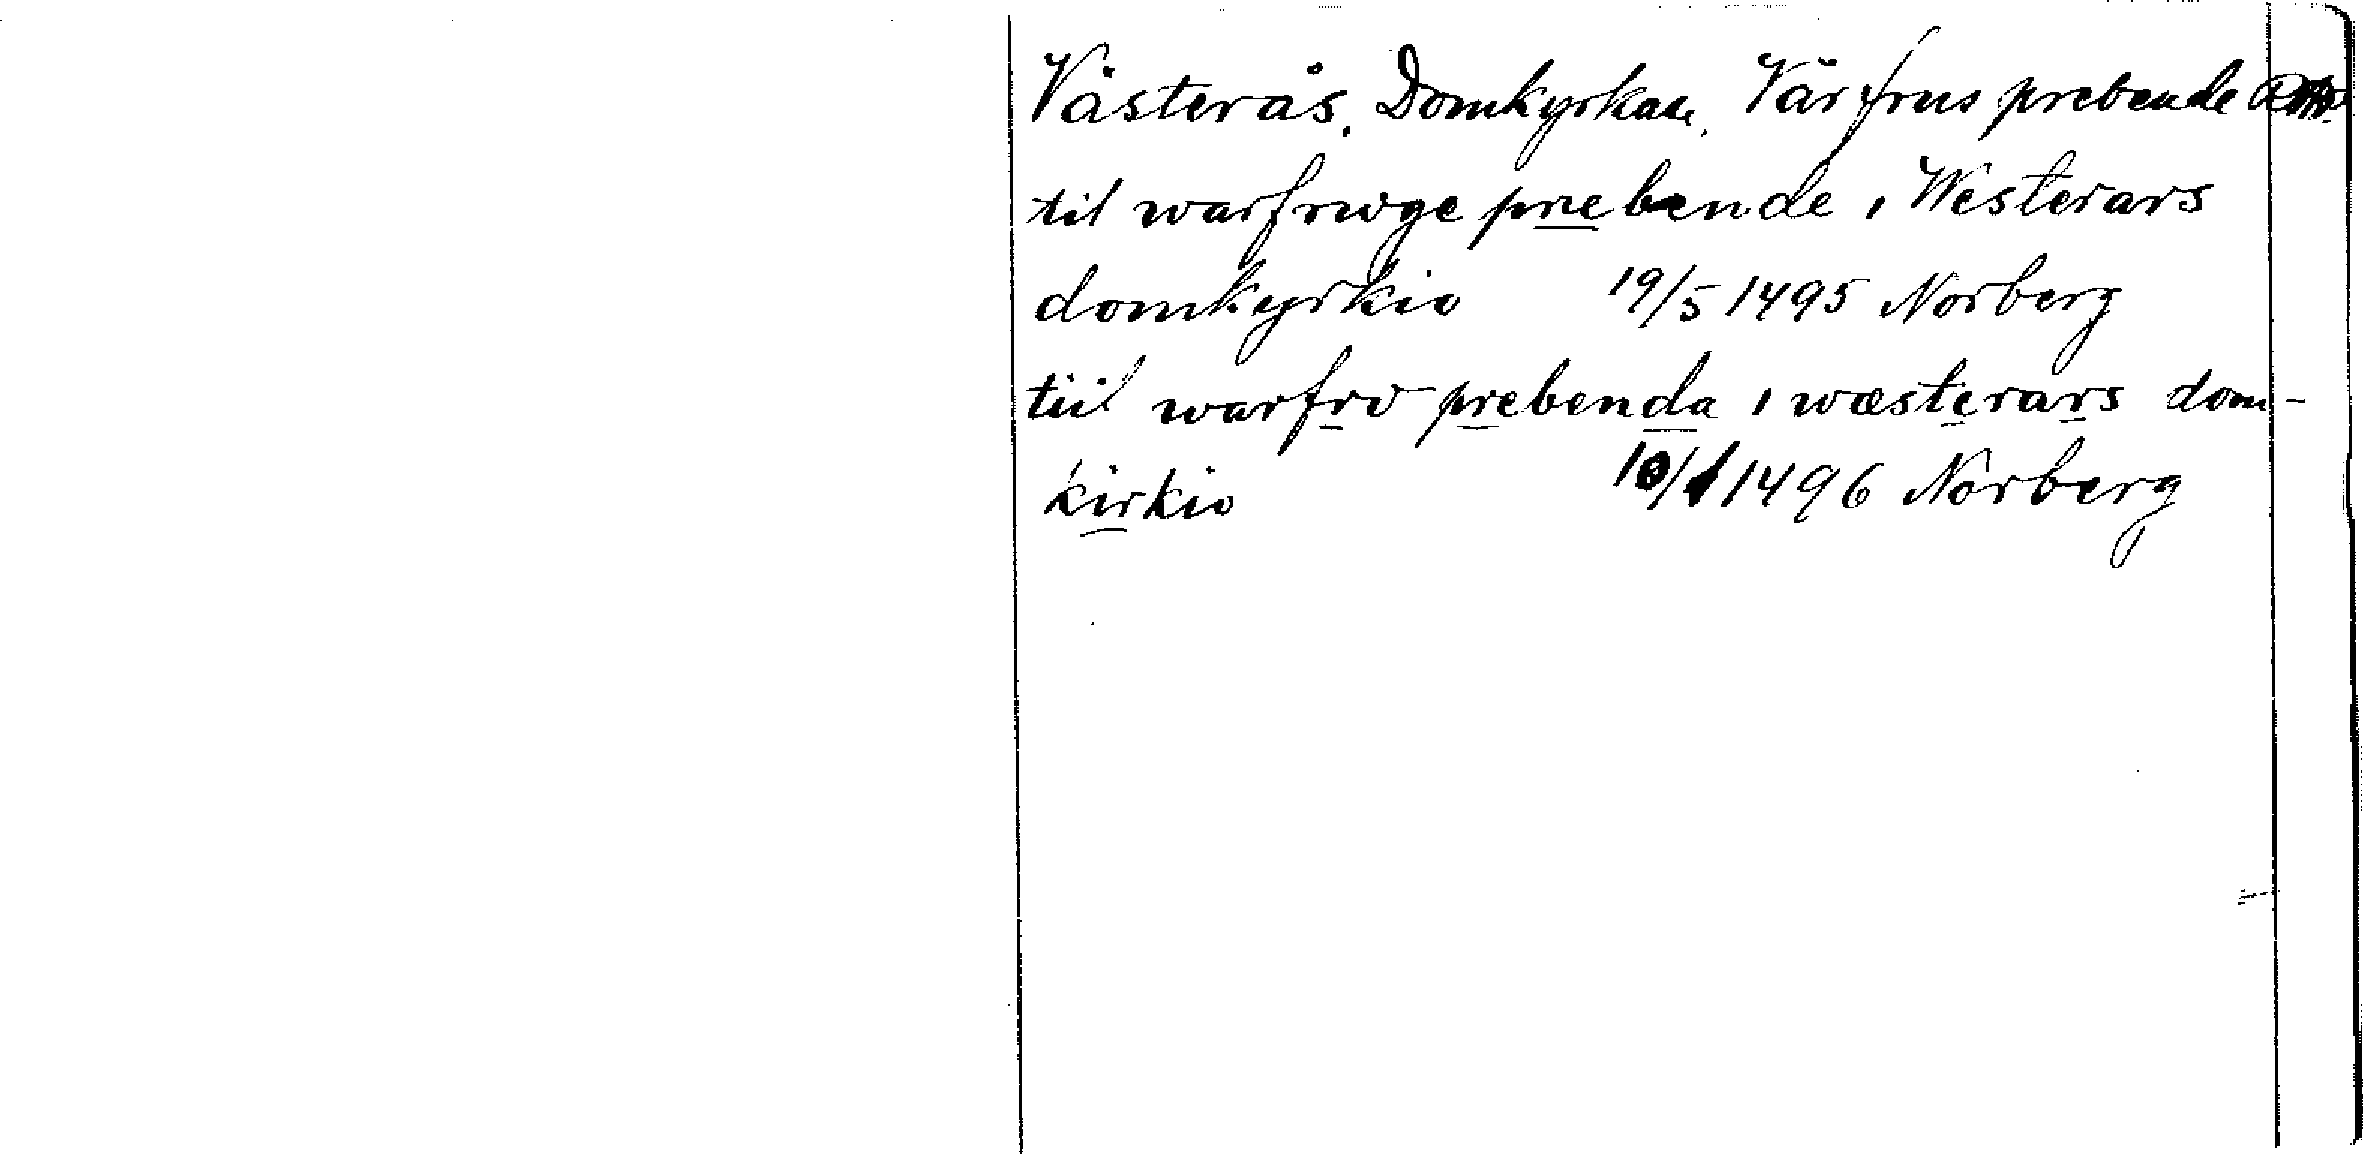 Västerås, Domkyrkan, Vårfrus prebende
til warfrwge prebende i Westerars
domkyrkio 19/5 1495 Norberg
tiil warfrv prebenda i wæsterars dom-
kirkio 10/1 1496 Norberg